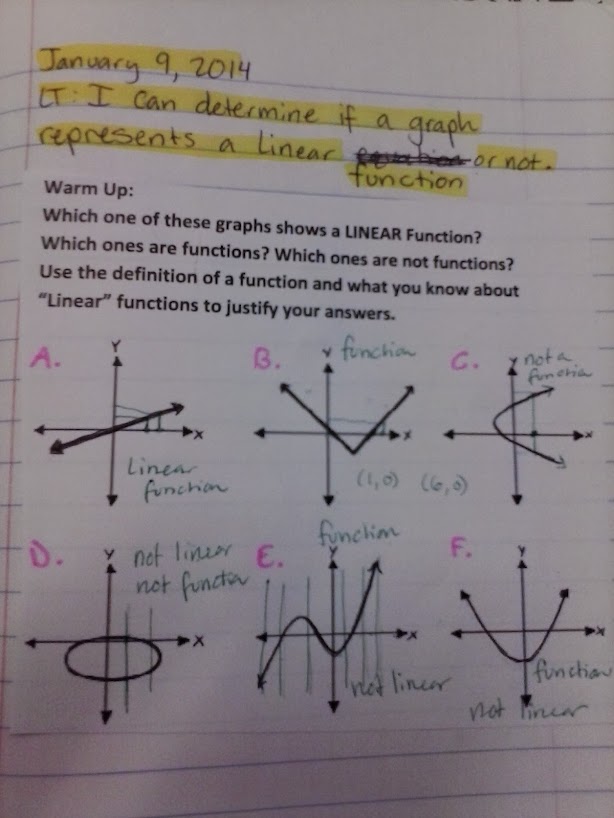 January 9, 2014
LT: I can determine if a graph
represents a linear or not.
function
Warm Up:
Which one of these graphs shows a LINEAR Function?
Which ones are functions? Which ones are not functions?
Use the definition of a function and what you know about
"Linear" functions to justify your answers.
A.
Y
X
Linear
function
B.
Y
function
X
(1,0) (6,0)
C.
Y
not a
function
X
D.
Y
not linear
not functio
X
E.
function
Y
X
not linear
F.
Y
X
function
not linear